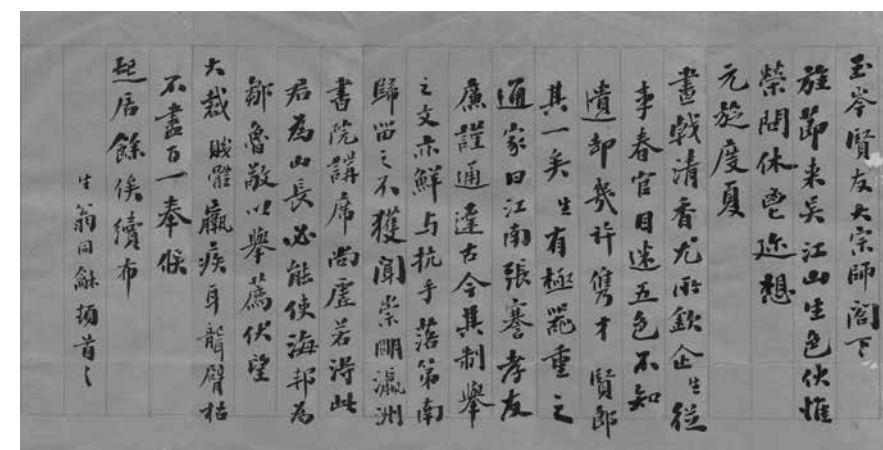 玉岑賢友大宗師閣下
旌節来吴江山生色伏惟
榮問休鬯遊想
元旋度夏
畫戟清香尤所欽企生從
事春官目迷五色不知
遺却幾許雋才賢郎
其一矣生有極器重之
通家曰江南張謇孝友
廉謹通達古今其制舉
之文亦鮮与抗手落第南
歸留之不獲聞崇明瀛洲
書院講席尚虛若得此
君為山長必能使海邦為
鄒魯敢以舉薦伏望
大裁賤體羸疾耳聾臂枯
不盡百一奉候
起居餘俟續布
生翁同龢頓首〻